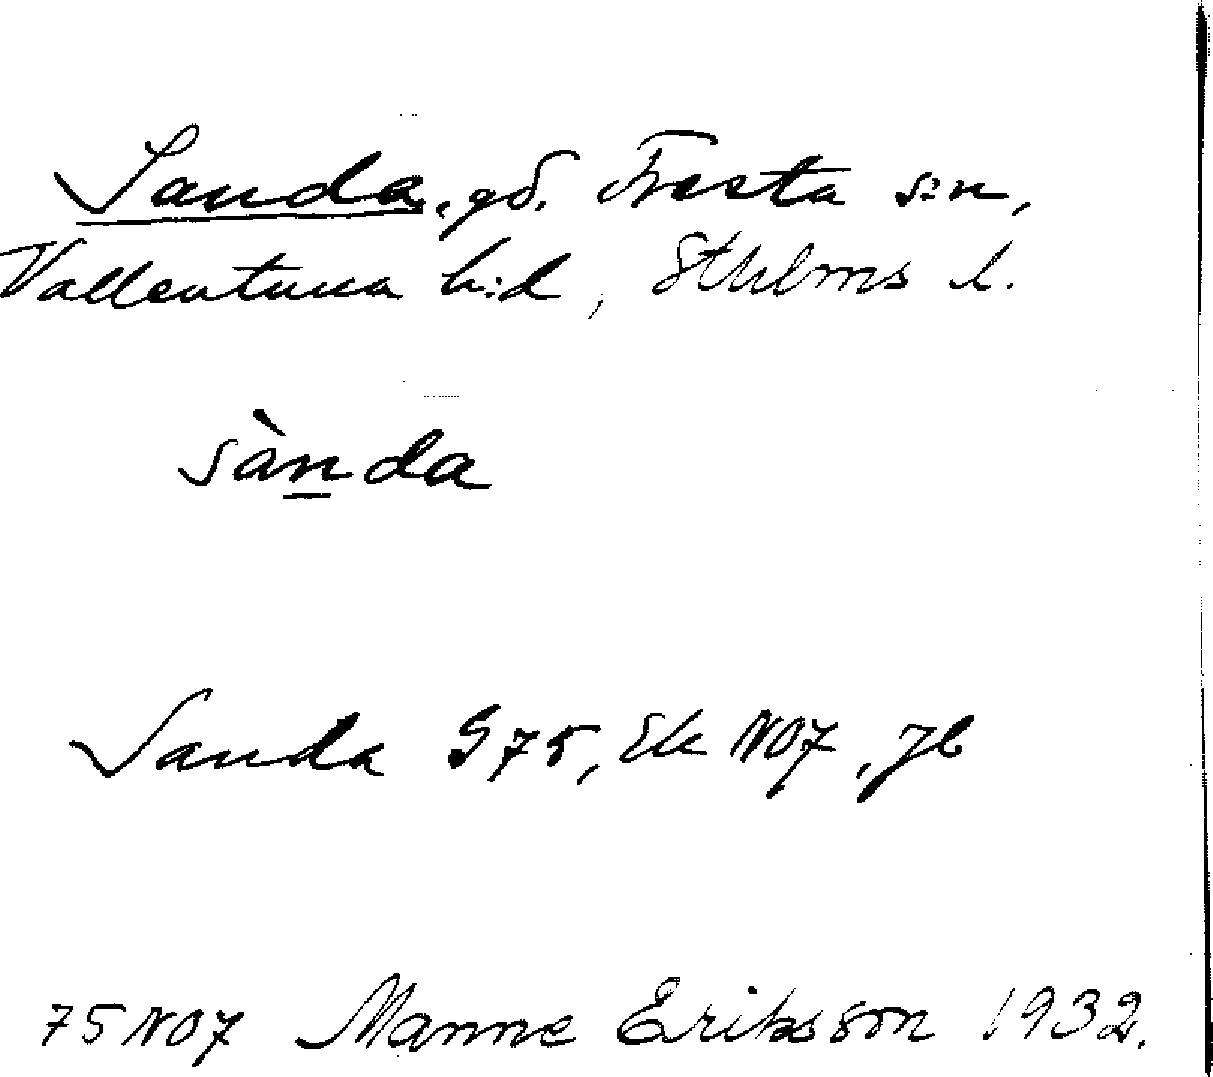 Sanda, gd. Fresta s:n,
Vallentuna h:d, Sthlms l.
sànda
Sanda G75, Ek NO7, Jb
75 NO7 Manne Eriksson 1932.